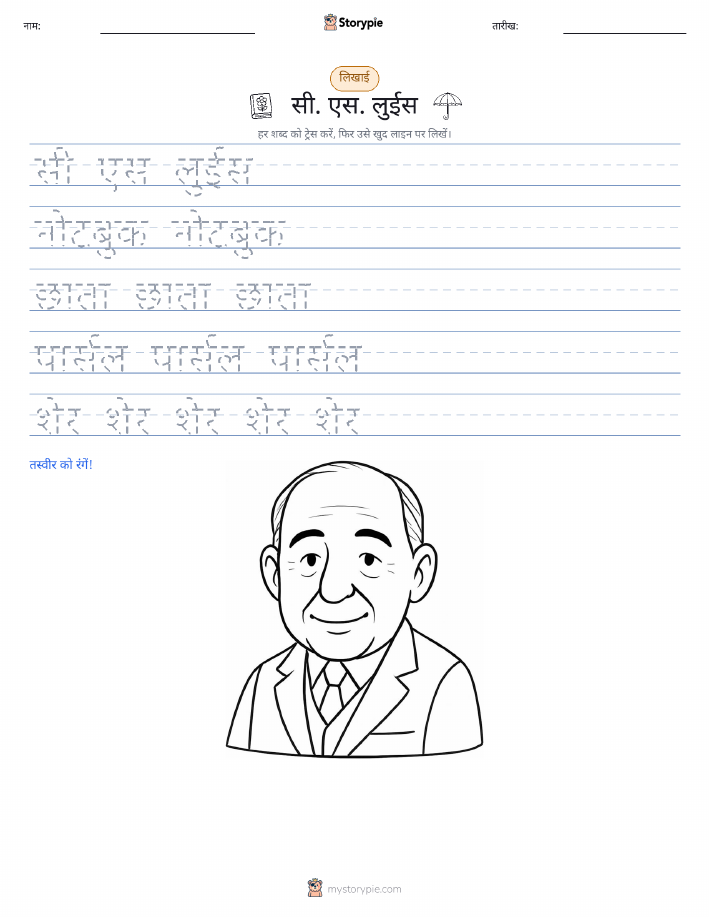 नाम:
Storypie
तारीख:
लिखाई
सी. एस. लुईस
हर शब्द को ट्रेस करें, फिर उसे खुद लाइन पर लिखें।
सी एस लुईस
नोटबुक नोटबुक
छाता छाता छाता
पार्सल पार्सल पार्सल
शेर शेर शेर शेर शेर
तस्वीर को रंगें!
mystorypie.com